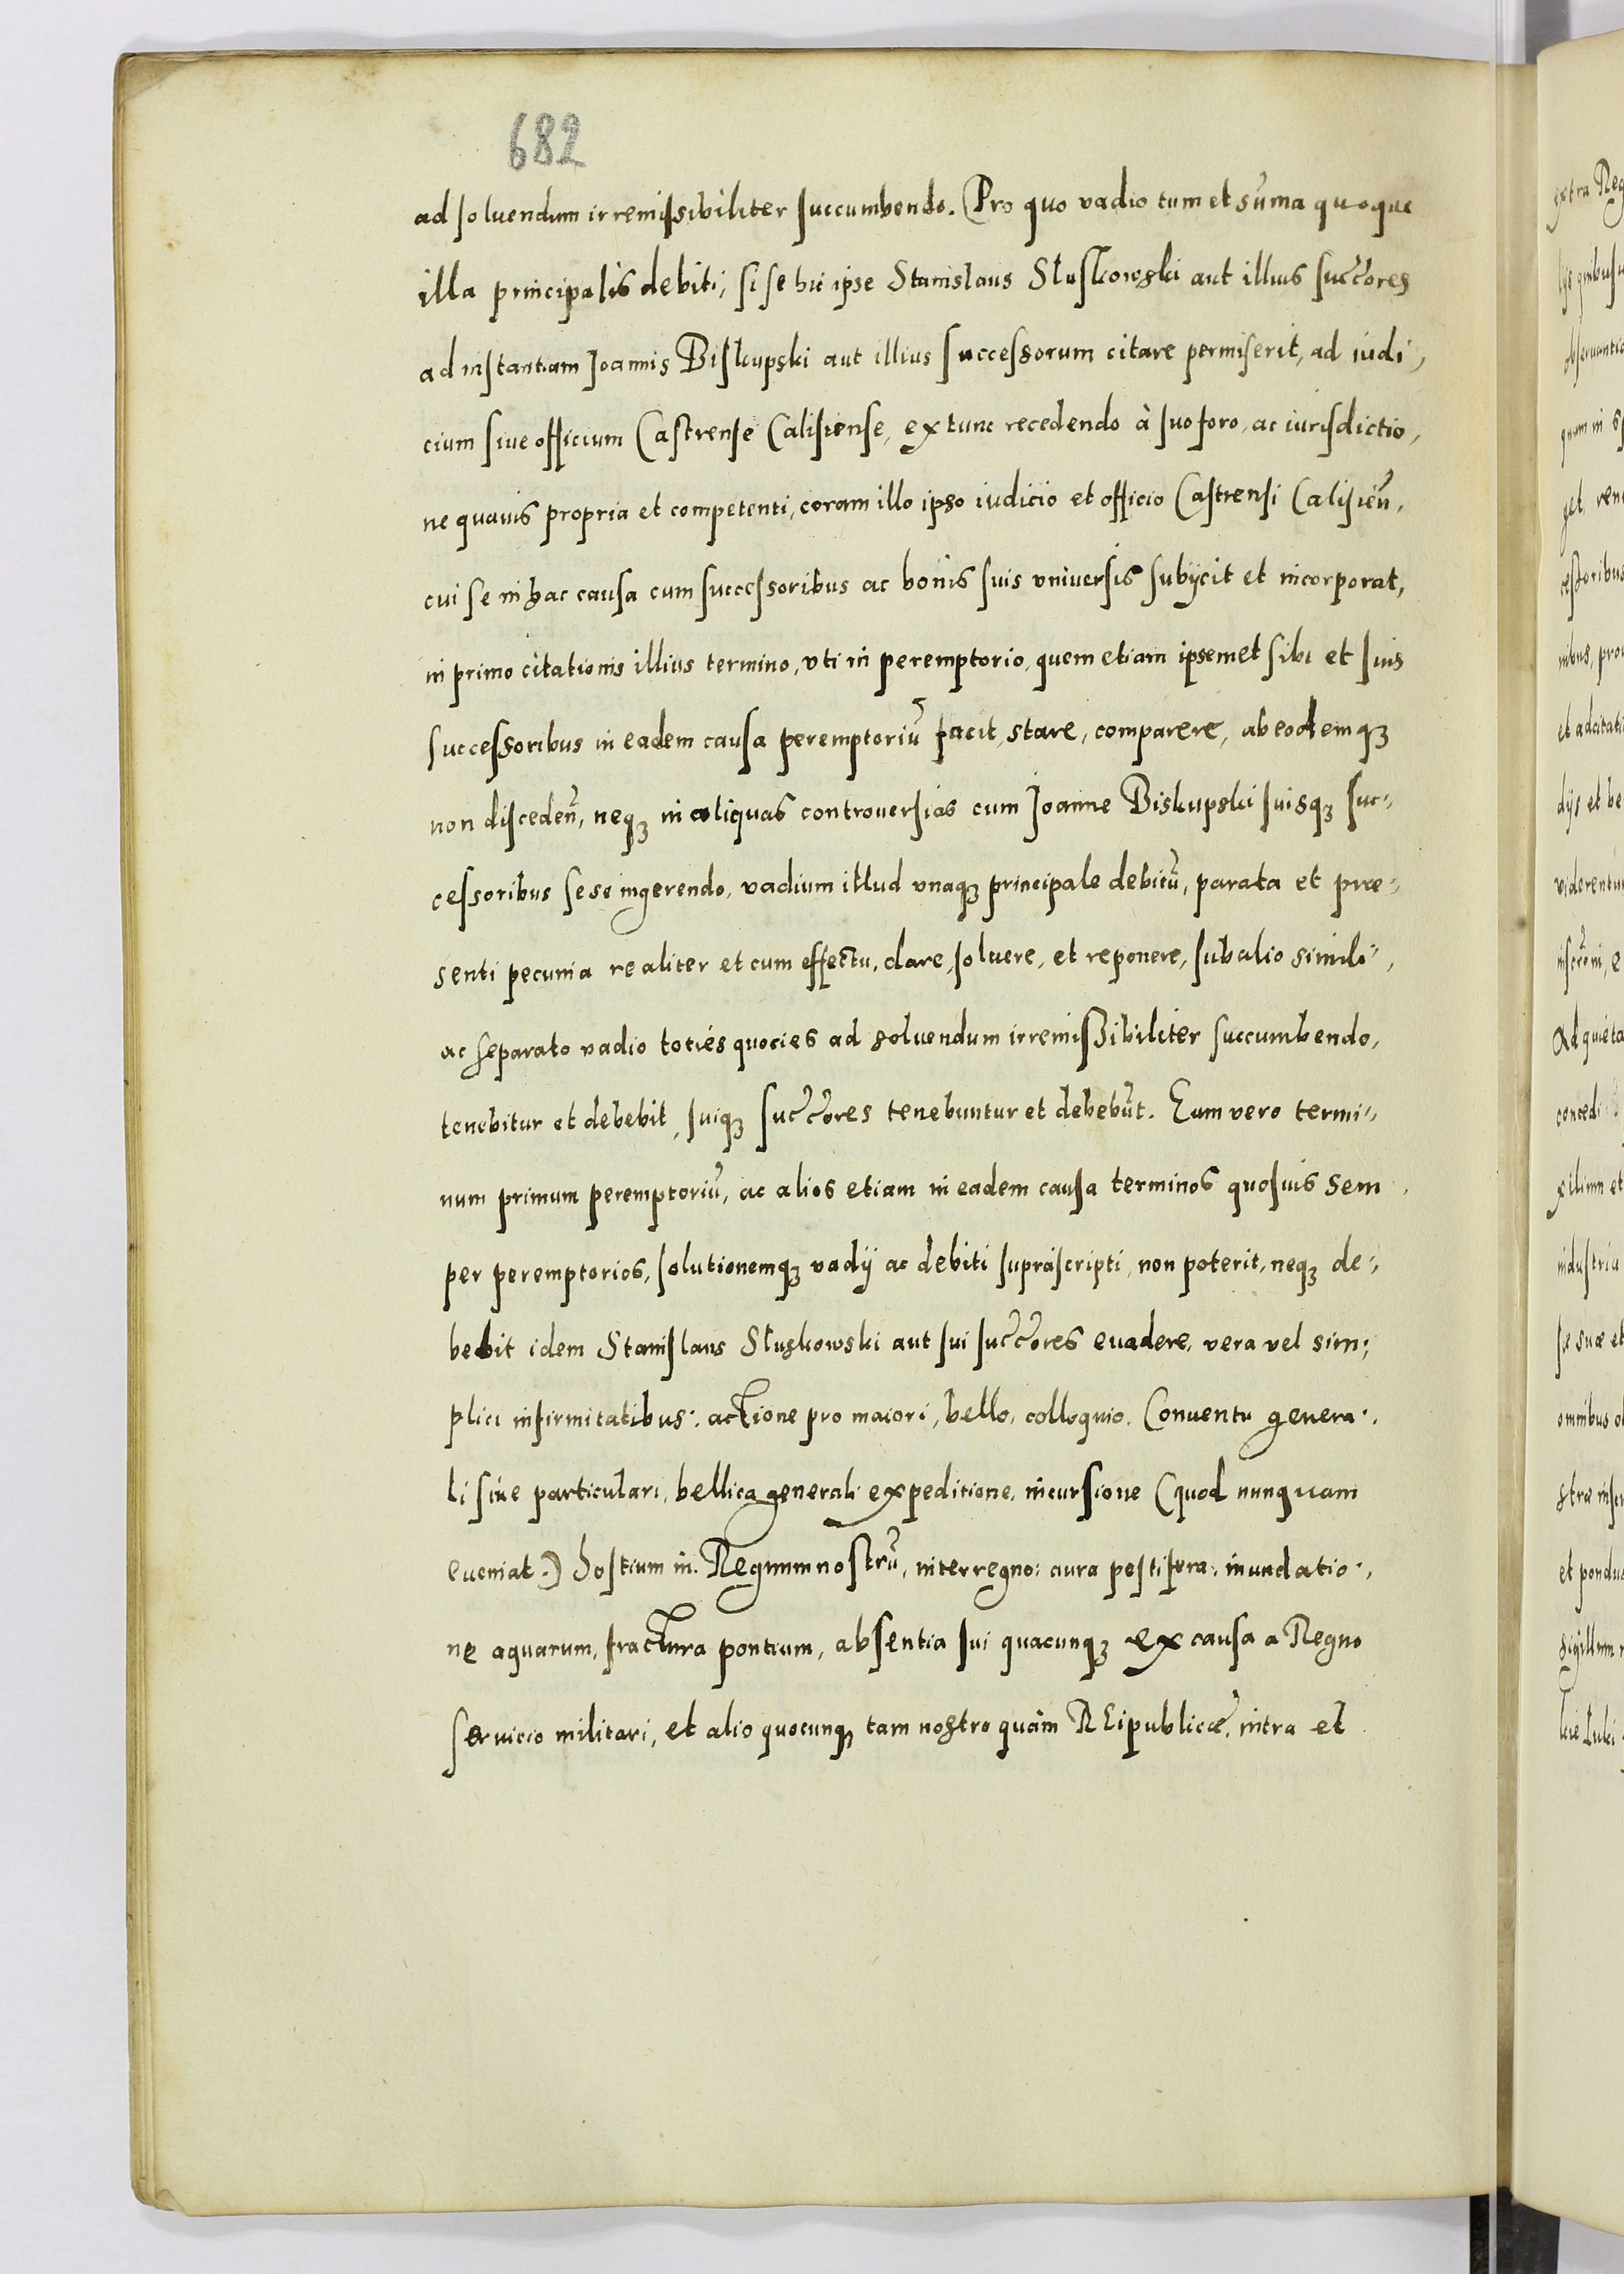 682
ad soluendum irremissibiliter succumbendo. Pro quo vadio tum et sum̃a quoque
illa principalis debiti, si se hic ipse Stanislaus Sluskowski aut illius succ̃ores
ad instantiam Joannis Biskupski aut illius successorum citare permiserit, ad iudi,
cium siue officium Castrense Calisiense, ex tunc recedendo à suo foro, ac iurisdictio,
ne quauis propria et competenti, coram illo ipso iudicio et officio Castrensi Calisień,
cui se in hac causa cum successoribus ac bonis suis vniuersis subijcit et incorporat,
in primo citationis illius termino, vti in peremptorio, quem etiam ipsemet sibi et suis
successoribus in eadem causa peremptoriũ facit, stare, comparere, ab eodemqꝫ
non discedeñ, neqꝫ in aliquas controuersias cum Joanne Biskupski suisqꝫ suc,,
cessoribus sese ingerendo, vadium illud vnaqꝫ principale debitũ, parata et præ,,
senti pecunia realiter et cum effectu, dare, soluere, et reponere, sub alio simili,
ac separato vadio toties quocies ad soluendum irremissibiliter succumbendo,
tenebitur et debebit, suiqꝫ succ̃ores tenebuntur et debebũt. Eum vero termi,,
num primum peremptoriũ, ac alios etiam in eadem causa terminos quosuis sem,
per peremptorios, solutionemqꝫ vadij ac debiti suprascripti, non poterit, neqꝫ de,,
bebit idem Stanislaus Sluskowski aut sui succ̃ores euadere, vera vel sim,,
plici infirmitatibus: actione pro maiori, bello, colloquio, Conuentu genera,
li siue particulari, bellica generali expeditione, incursione (quod nunquam
eueniat.) hostium in Regnum nostrũ, interregno: aura pestifera: inundatio,
ne aquarum, fractura pontium, absentia sui quacunqꝫ ex causa a Regno
seruicio militari, et alio quocunqꝫ tam nostro quàm REipublicæ, intra et